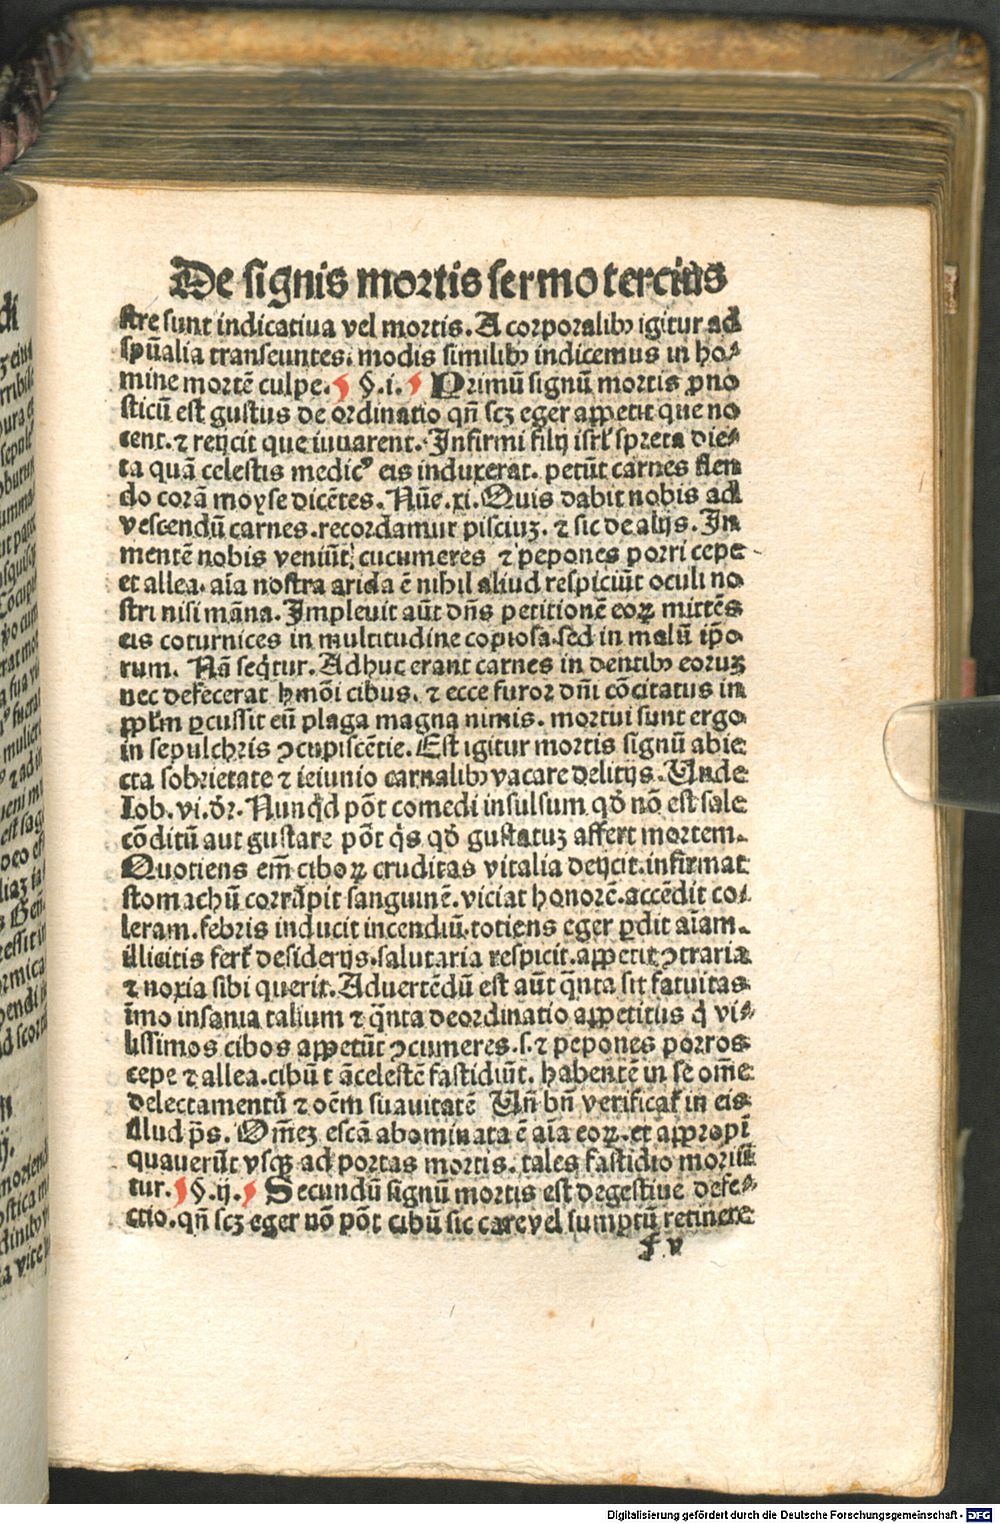 De signis mortis sermo tercius
stre sunt indicatiua vel mortis. A corporalibꝰ igitur ad
spũalia transeuntes. modis similibꝰ indicemus in ho-
mine mortẽ culpe. ¶ §.i. ¶ Primũ signũ mortis ꝓno
sticũ est gustus de ordinatio qñ scꝫ eger appetit que no
cent. ⁊ reijcit que iuuarent. Infirmi filij isrl' spreta die-
ta quã celestis medicꝰ eis induxerat. petũt carnes flen
do corã moyse dicẽtes. Nũe. xi. Quis dabit nobis ad
vescendũ carnes. recordamur pisciuꝫ. ⁊ sic de alijs. In
mentẽ nobis veniũt cucumeres ⁊ pepones porri cepe
et allea. aĩa nostra arida ẽ nihil aliud respiciũt oculi no
stri nisi mãna. Impleuit aũt dñs petitionẽ eoꝝ mittẽs
eis coturnices in multitudine copiosa. sed in malũ ip̃o
rum. Nã seq̃tur. Adhuc erant carnes in dentibꝰ eoruꝫ
nec defecerat hmõi cibus. ⁊ ecce furor dñi cõcitatus in
pp̃l'm ꝑcussit eũ plaga magna nimis. mortui sunt ergo
in sepulchris ꝯcupiscẽtie. Est igitur mortis signũ abie
cta sobrietate ⁊ ieiunio carnalibꝰ vacare delitijs. Unde
Iob. vi. dr̃. Nunq̃d põt comedi insulsum qđ nõ est sale
cõditũ aut gustare põt q̃s qđ gustatuꝫ affert mortem.
Quotiens em̃ ciboꝝ cruditas vitalia deijcit. infirmat
stomachũ corrũpit sanguinẽ. viciat honorẽ. accẽdit co-
leram. febris inducit incendiũ. totiens eger ꝑdit aĩam.
illicitis fert' desiderijs. salutaria respicit. appetit ꝯtraria
⁊ noxia sibi querit. Aduertẽdũ est aũt q̃nta sit fatuitas
ĩmo insania talium ⁊ q̃nta deordinatio appetitus q̃ vi-
lissimos cibos appetũt ꝯcumeres. s. ⁊ pepones porros
cepe ⁊ allea. cibũ t ãcelestẽ fastidiũt. habentẽ in se om̃e
delectamentũ ⁊ oẽm suauitatẽ Uñ bñ verificat' in eis
illud ps̃. Om̃eꝫ escã abominata ẽ aĩa eoꝝ. et appropĩ
quauerũt vsqꝫ ad portas mortis. tales fastidio moriũ
tur. ¶ §.ij. ¶ Secundũ signũ mortis est degestiue defe-
ctio. qñ scꝫ eger nõ põt cibũ sic care vel sumptũ retinere
f v
Digitalisierung gefördert durch die Deutsche Forschungsgemeinschaft - DFG